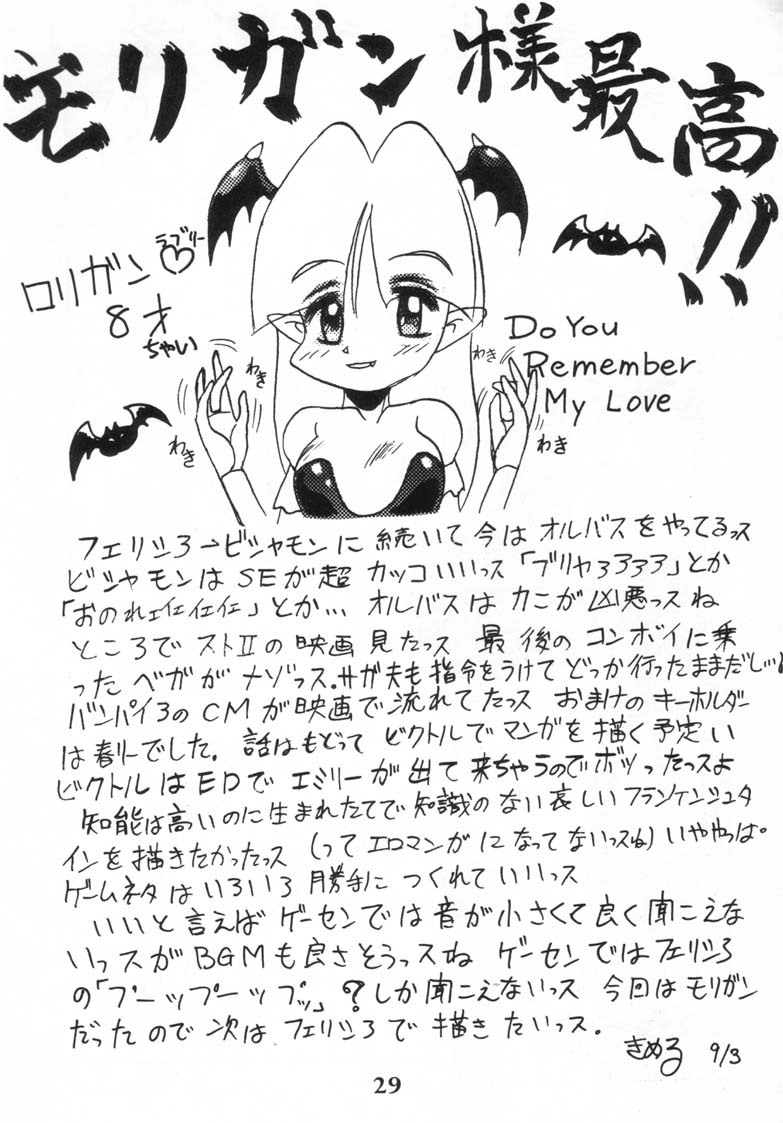 モリガン様最高!!
ロリガン
ラブリー
8才
ちゃい
わき
わき
わき
わき
Do You
Remember
My Love
フェリシア→ビシャモンに続いて今はオルバスをやってるっス
ビシャモンはSEが超カッコいいっス「ブリャァァァァ」とか
「おのれェィィィィ」とか… オルバスはカニが凶悪っスね
ところでストⅡの映画見たっス 最後のコンボイに乗
ったベガがナゾっス。サガ夫も指令をうけてどっか行ったままだし…
バンパイアのCMが映画で流れてたっス おまけのキーホルダー
は春リーでした。話はもどってビクトルでマンガを描く予定い
ビクトルはEDでエミリーが出て来ちゃうのでボツったっスよ
知能は高いのに生まれたてで知識のない哀しいフランケンシュタ
インを描きたかったっス(ってエロマンガになってないっスね)いややっぱ。
ゲームネタはいろいろ勝手につくれていいっス
いいと言えばゲーセンでは音が小さくて良く聞こえな
いっスがBGMも良さそうっスね ゲーセンではフェリシア
の「プーップーップッ」?しか聞こえないっス 今回はモリガン
だったので次はフェリシアで描きたいっス。
きめる 9/3
29